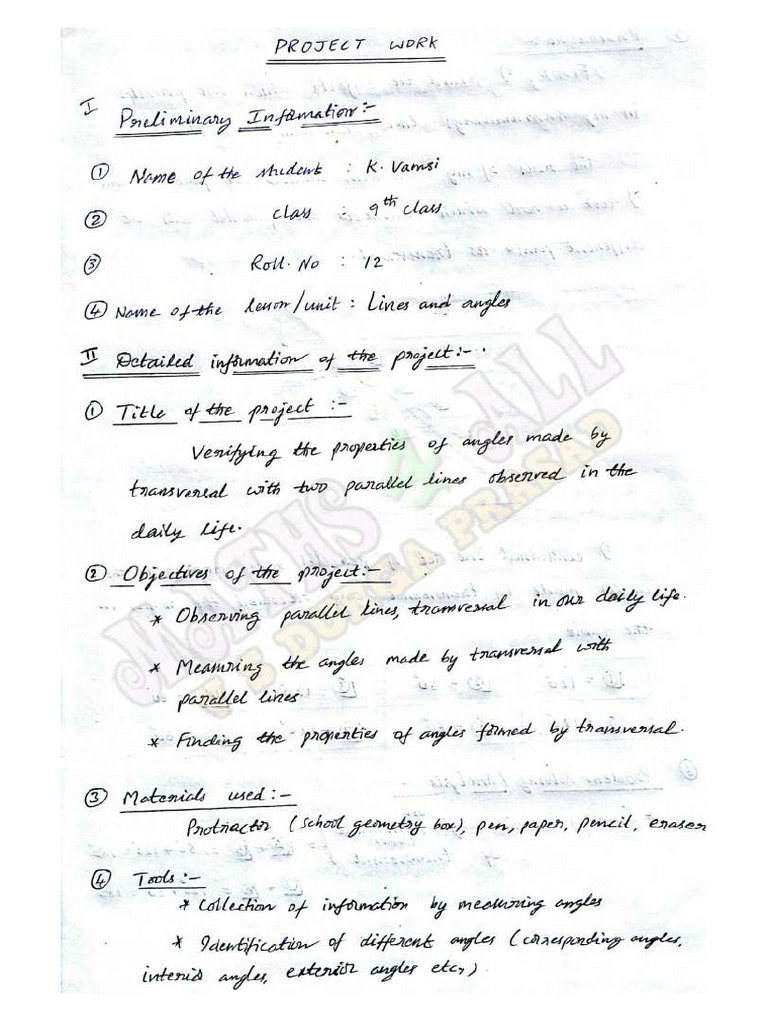 PROJECT WORK
I Preliminary Information:-
① Name of the student : K. Vamsi
② class : 9th class
③ Roll. No : 12
④ Name of the lesson/unit : Lines and angles
II Detailed information of the project:-
① Title of the project :-
Verifying the properties of angles made by
transversal with two parallel lines observed in the
daily life.
② Objectives of the project:-
* Observing parallel lines, transversal in our daily life.
* Measuring the angles made by transversal with
parallel lines
* Finding the properties of angles formed by transversal.
③ Materials used:-
Protractor (school geometry box), pen, paper, pencil, eraser
④ Tools:-
* Collection of information by measuring angles
* Identification of different angles (corresponding angles,
interior angles, exterior angles etc,)
MATHS 4 ALL
DURGA PRASAD